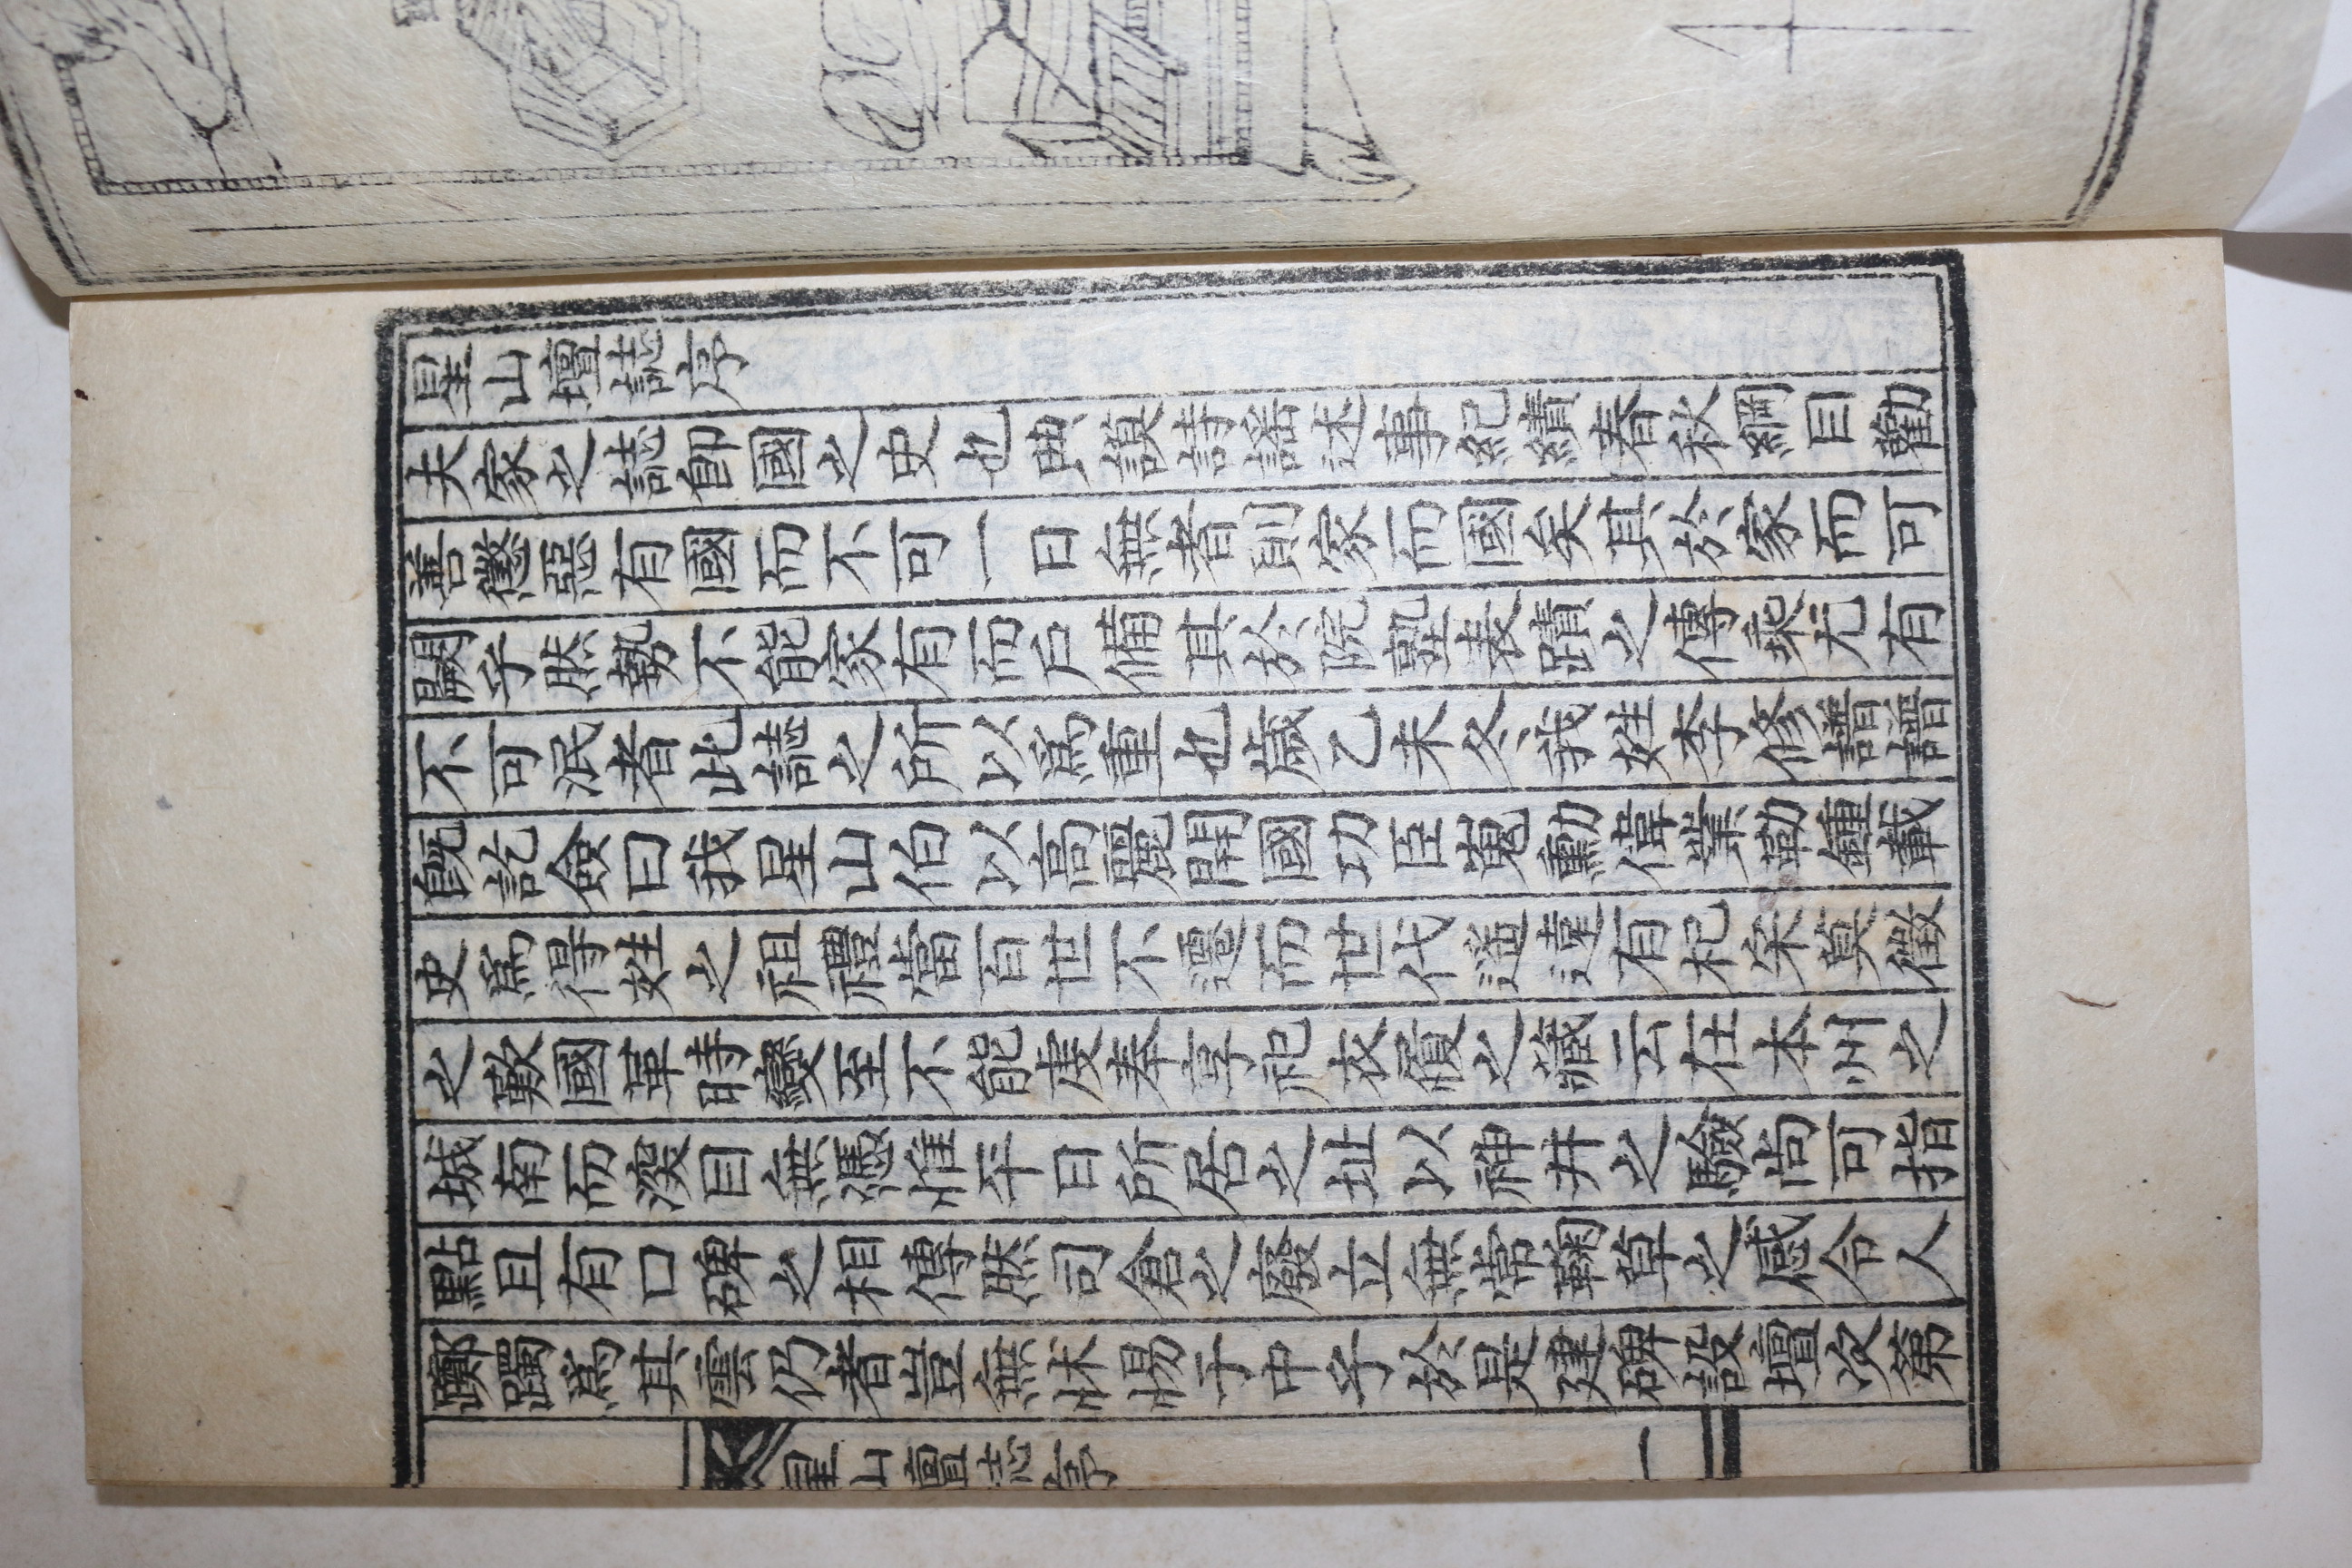 星山壇誌序
夫家之誌卽國之史也典謨詩謠述事紀績春秋綱目勸
善懲惡有國而不可一日無者則家而國矣其於家而可
闕乎然勢不能家有而戶備其於院塾表蹟之傳乘尤有
不可泯者此誌之所以爲重也歲乙未冬我姓李修譜譜
旣訖僉曰我星山伯以高麗開國功臣嵬勳偉業勒鍾載
史爲得姓之祖禮當百世不遷而世代遙遠有杞宋莫徵
之歎國革時變至不能虔奉享祀衣履之藏云在本州之
城南而溪目無憑惟平日所居之址以神井之驗尙可指
點且有口碑之相傳然司倉之廢立無常鞠草之感令人
躑躅爲其雲仍者豈無怵惕于中乎於是建碑設壇次第
星山壇誌序
一